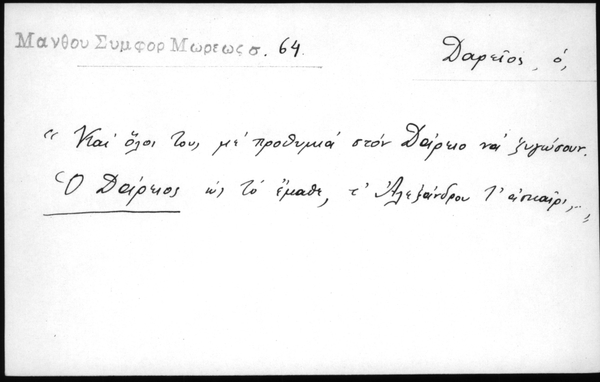 Μανθου Συμφορ Μωρεως σ. 64.
Δαρεῖος, ὁ,
"Καί ὅλοι τους μέ προθυμιά στόν Δάρειο νά ζυγώσουν.
Ὁ Δάρειος ὡς τό ἔμαθε, τ' Ἀλεξάνδρου τ' ἀσκαῖρι,..."